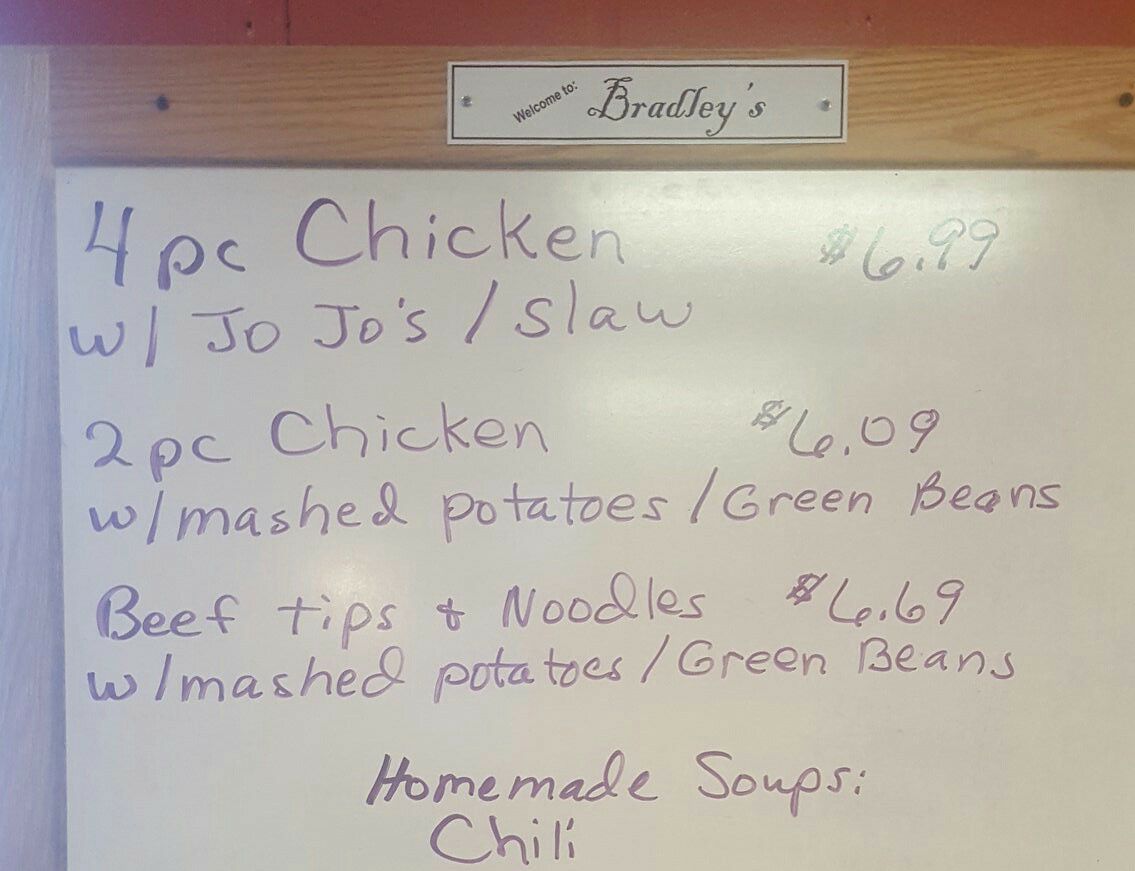 Welcome to: Bradley's
4 pc Chicken $6.99
w/ Jo Jo's / Slaw
2 pc Chicken $6.09
w/mashed potatoes / Green Beans
Beef tips & Noodles $6.69
w/mashed potatoes / Green Beans
Homemade Soups:
Chili